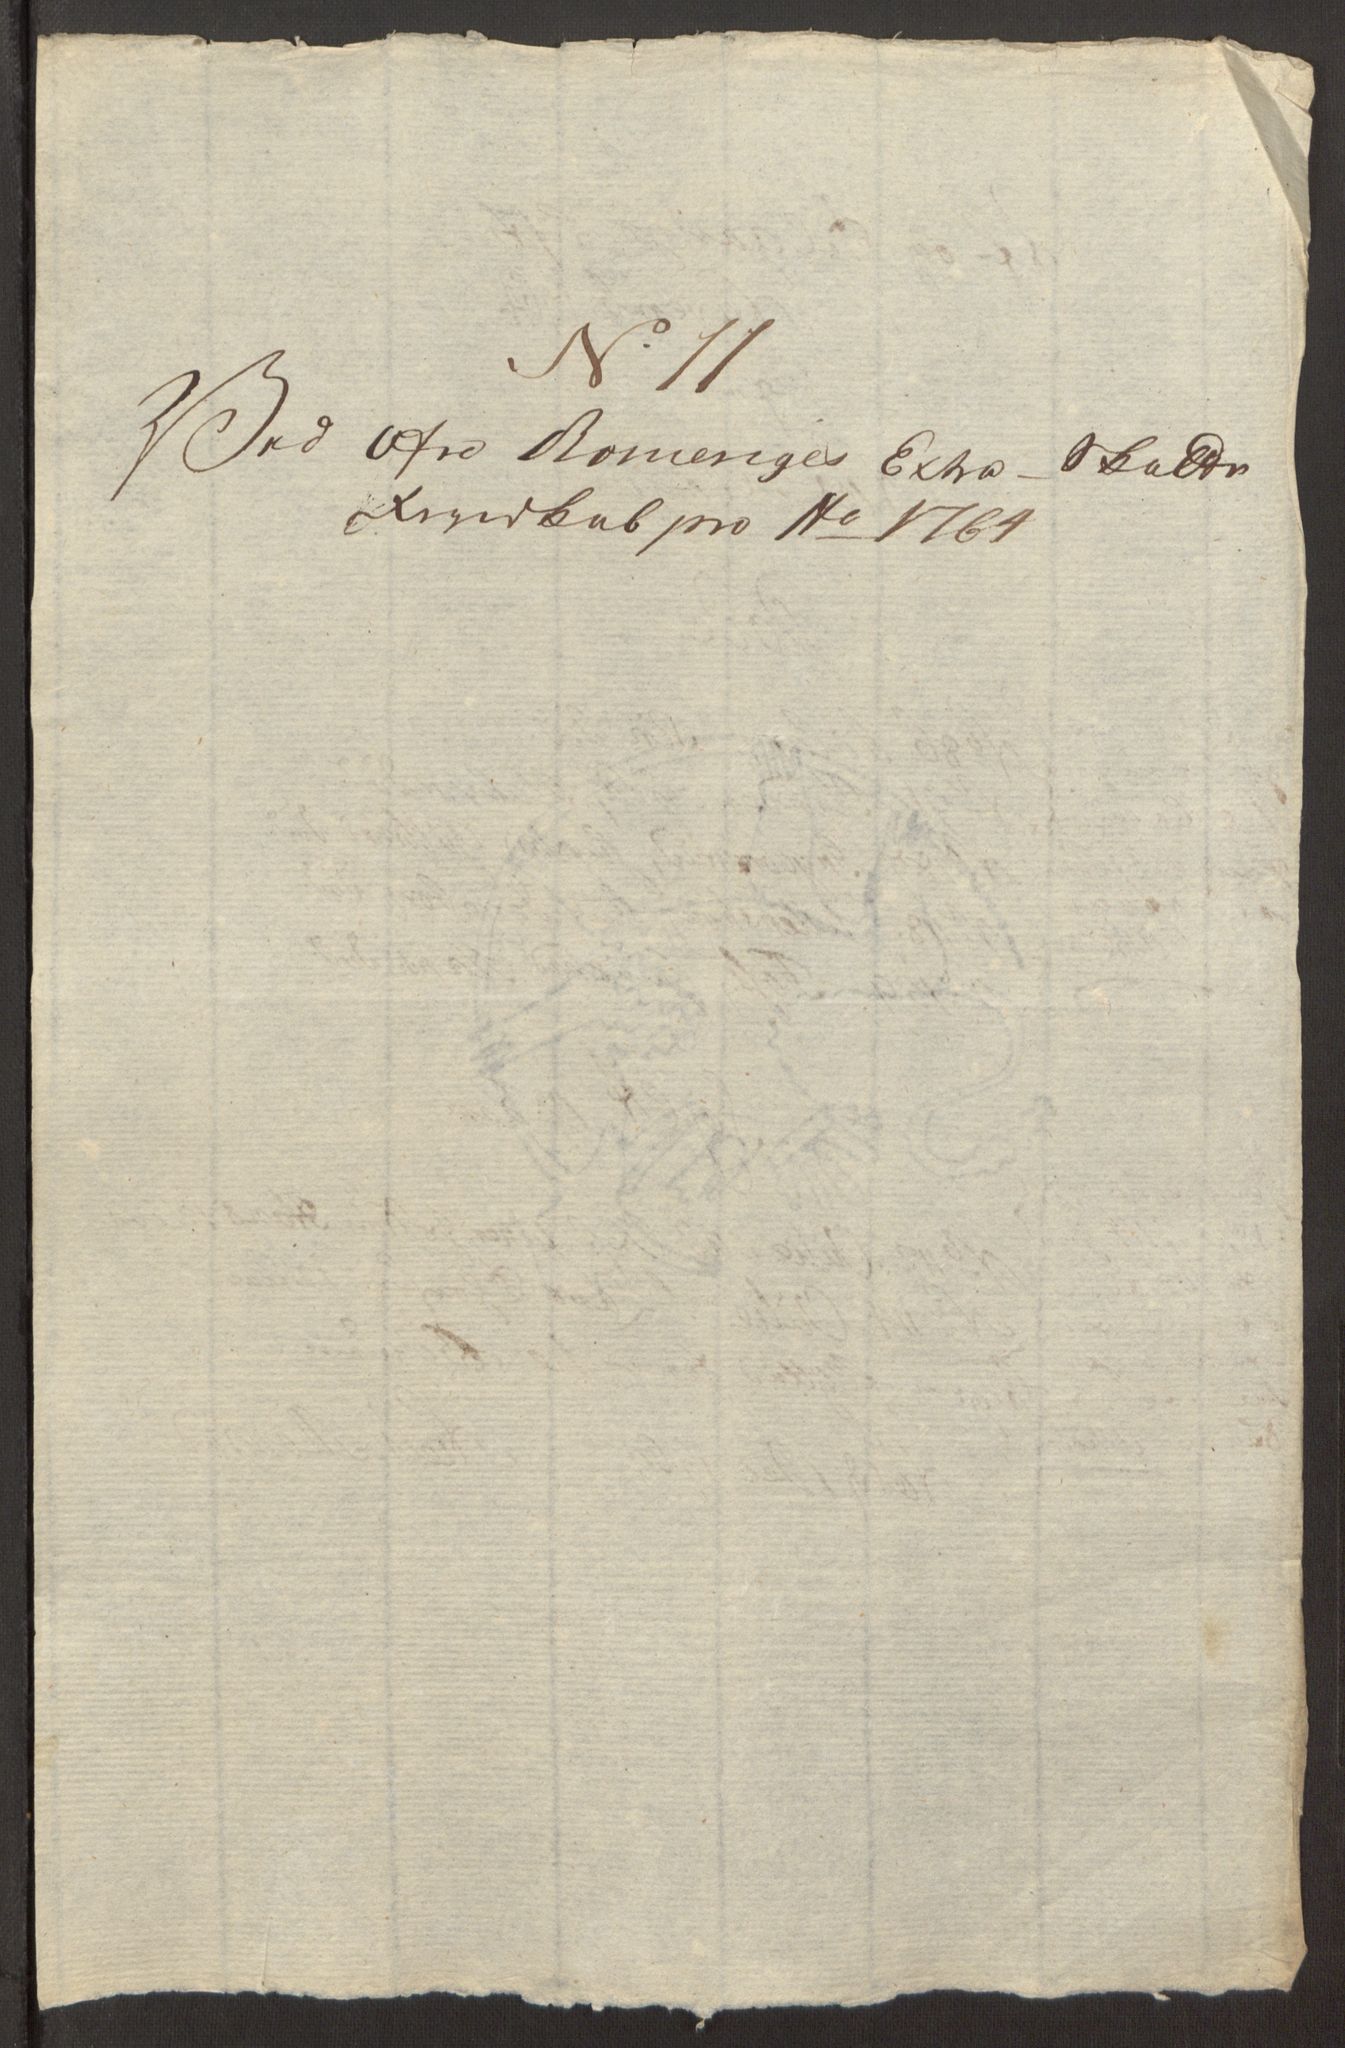 No. 11
Ved Øfre Romeriges Extra-Skatte
Regnskab pro Ao 1764